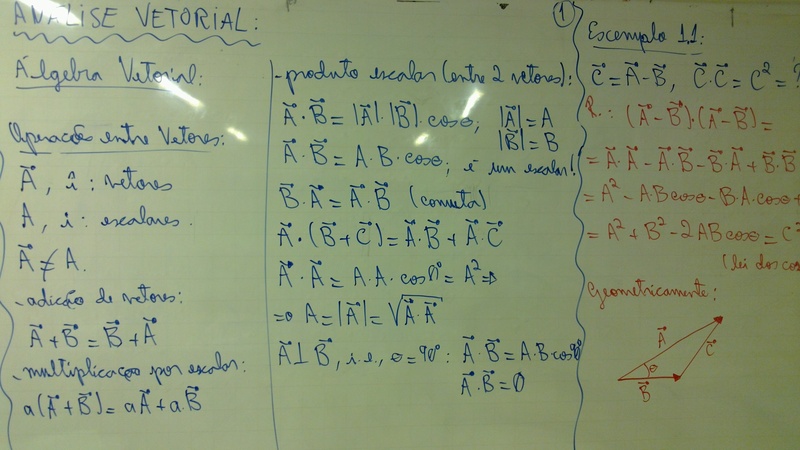 ANÁLISE VETORIAL:
Álgebra Vetorial:
Operações entre Vetores:
A⃗, î : vetores
A, i : escalares.
A⃗ ≠ A.
- adição de vetores:
A⃗ + B⃗ = B⃗ + A⃗
- multiplicação por escalar:
a(A⃗ + B⃗) = aA⃗ + a.B⃗
1
- produto escalar (entre 2 vetores):
A⃗ · B⃗ = |A⃗| · |B⃗| · cosθ; |A⃗| = A
|B⃗| = B
A⃗ · B⃗ = A · B · cosθ; é um escalar!
B⃗ · A⃗ = A⃗ · B⃗ (comuta)
A⃗ · (B⃗ + C⃗) = A⃗ · B⃗ + A⃗ · C⃗
A⃗ · A⃗ = A · A · cos0° = A² ⇒
⇒ A = |A⃗| = √A⃗ · A⃗
A⃗ ⊥ B⃗, i.e., θ = 90° : A⃗ · B⃗ = A · B cos90°
A⃗ · B⃗ = 0
Escemplo 1.1:
C⃗ = A⃗ - B⃗, C⃗ · C⃗ = C² = ?
R.: (A⃗ - B⃗) · (A⃗ - B⃗) =
= A⃗ · A⃗ - A⃗ · B⃗ - B⃗ · A⃗ + B⃗ · B⃗
= A² - A.B cosθ - B.A.cosθ +
= A² + B² - 2AB cosθ = C²
(lei dos cos
Geometricamente:
A⃗
C⃗
θ
B⃗